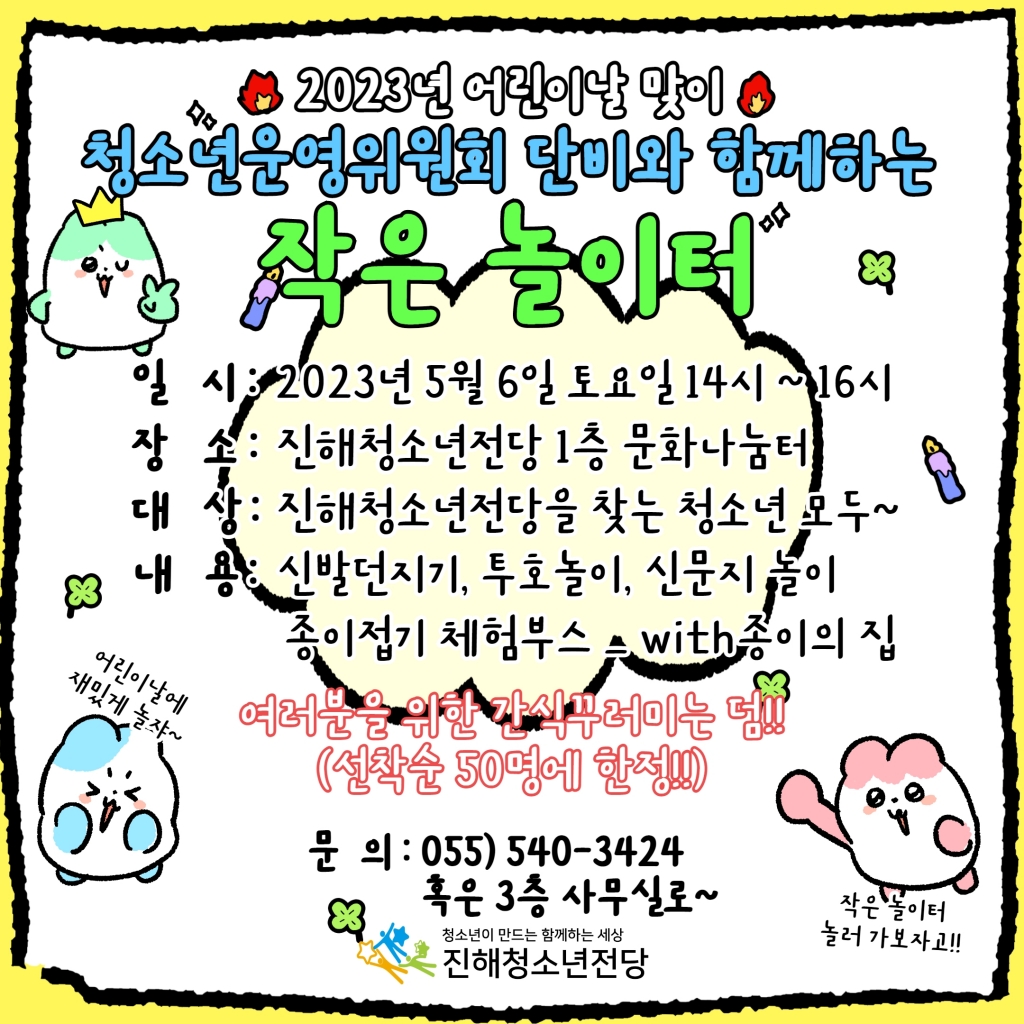 2023년 어린이날 맞이
청소년운영위원회 단비와 함께하는
작은 놀이터
일 시 : 2023년 5월 6일 토요일 14시 ~ 16시
장 소 : 진해청소년전당 1층 문화나눔터
대 상 : 진해청소년전당을 찾는 청소년 모두~
내 용 : 신발던지기, 투호놀이, 신문지 놀이
종이접기 체험부스 - with종이의 집
어린이날에
재밌게 놀쟈~
여러분을 위한 간식꾸러미는 덤!!
(선착순 50명에 한정!!)
문 의 : 055) 540-3424
혹은 3층 사무실로~
작은 놀이터
놀러 가보자고!!
청소년이 만드는 함께하는 세상
진해청소년전당